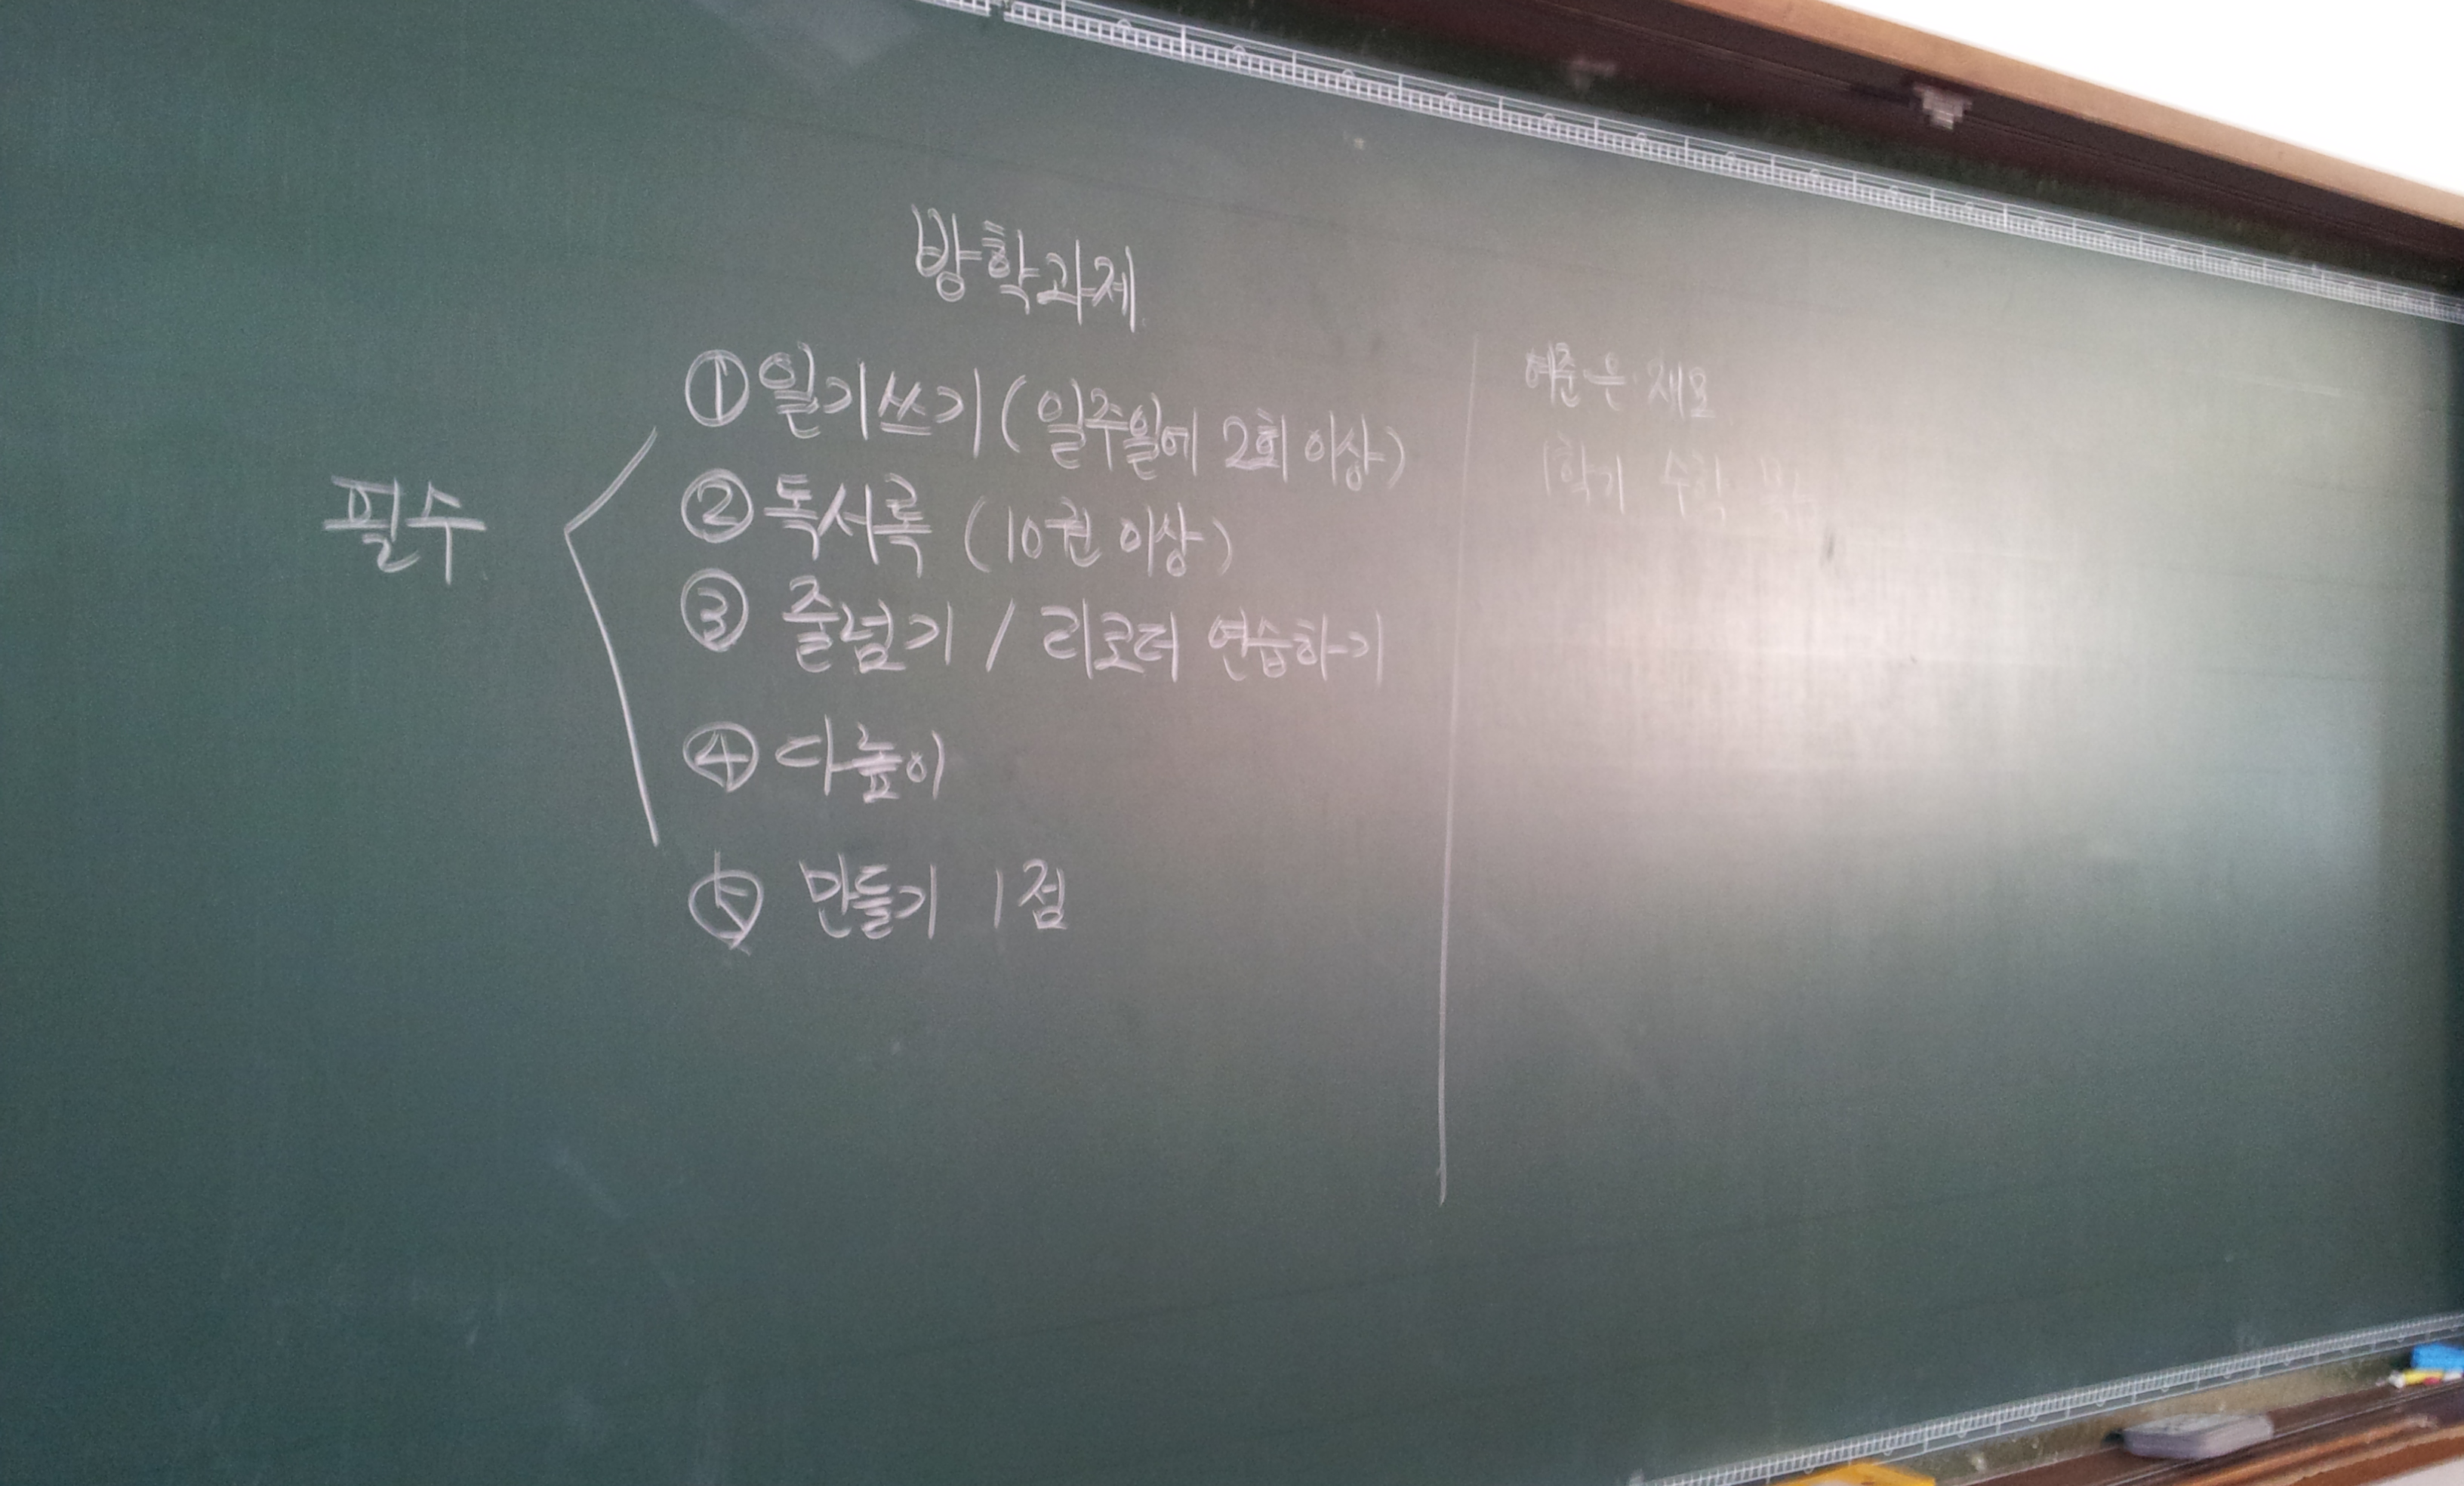 방학과제
필수
① 일기쓰기 (일주일에 2회 이상)
② 독서록 (10권 이상)
③ 줄넘기 / 리코더 연습하기
④ 다높이
⑤ 만들기 1점
1학기 수학